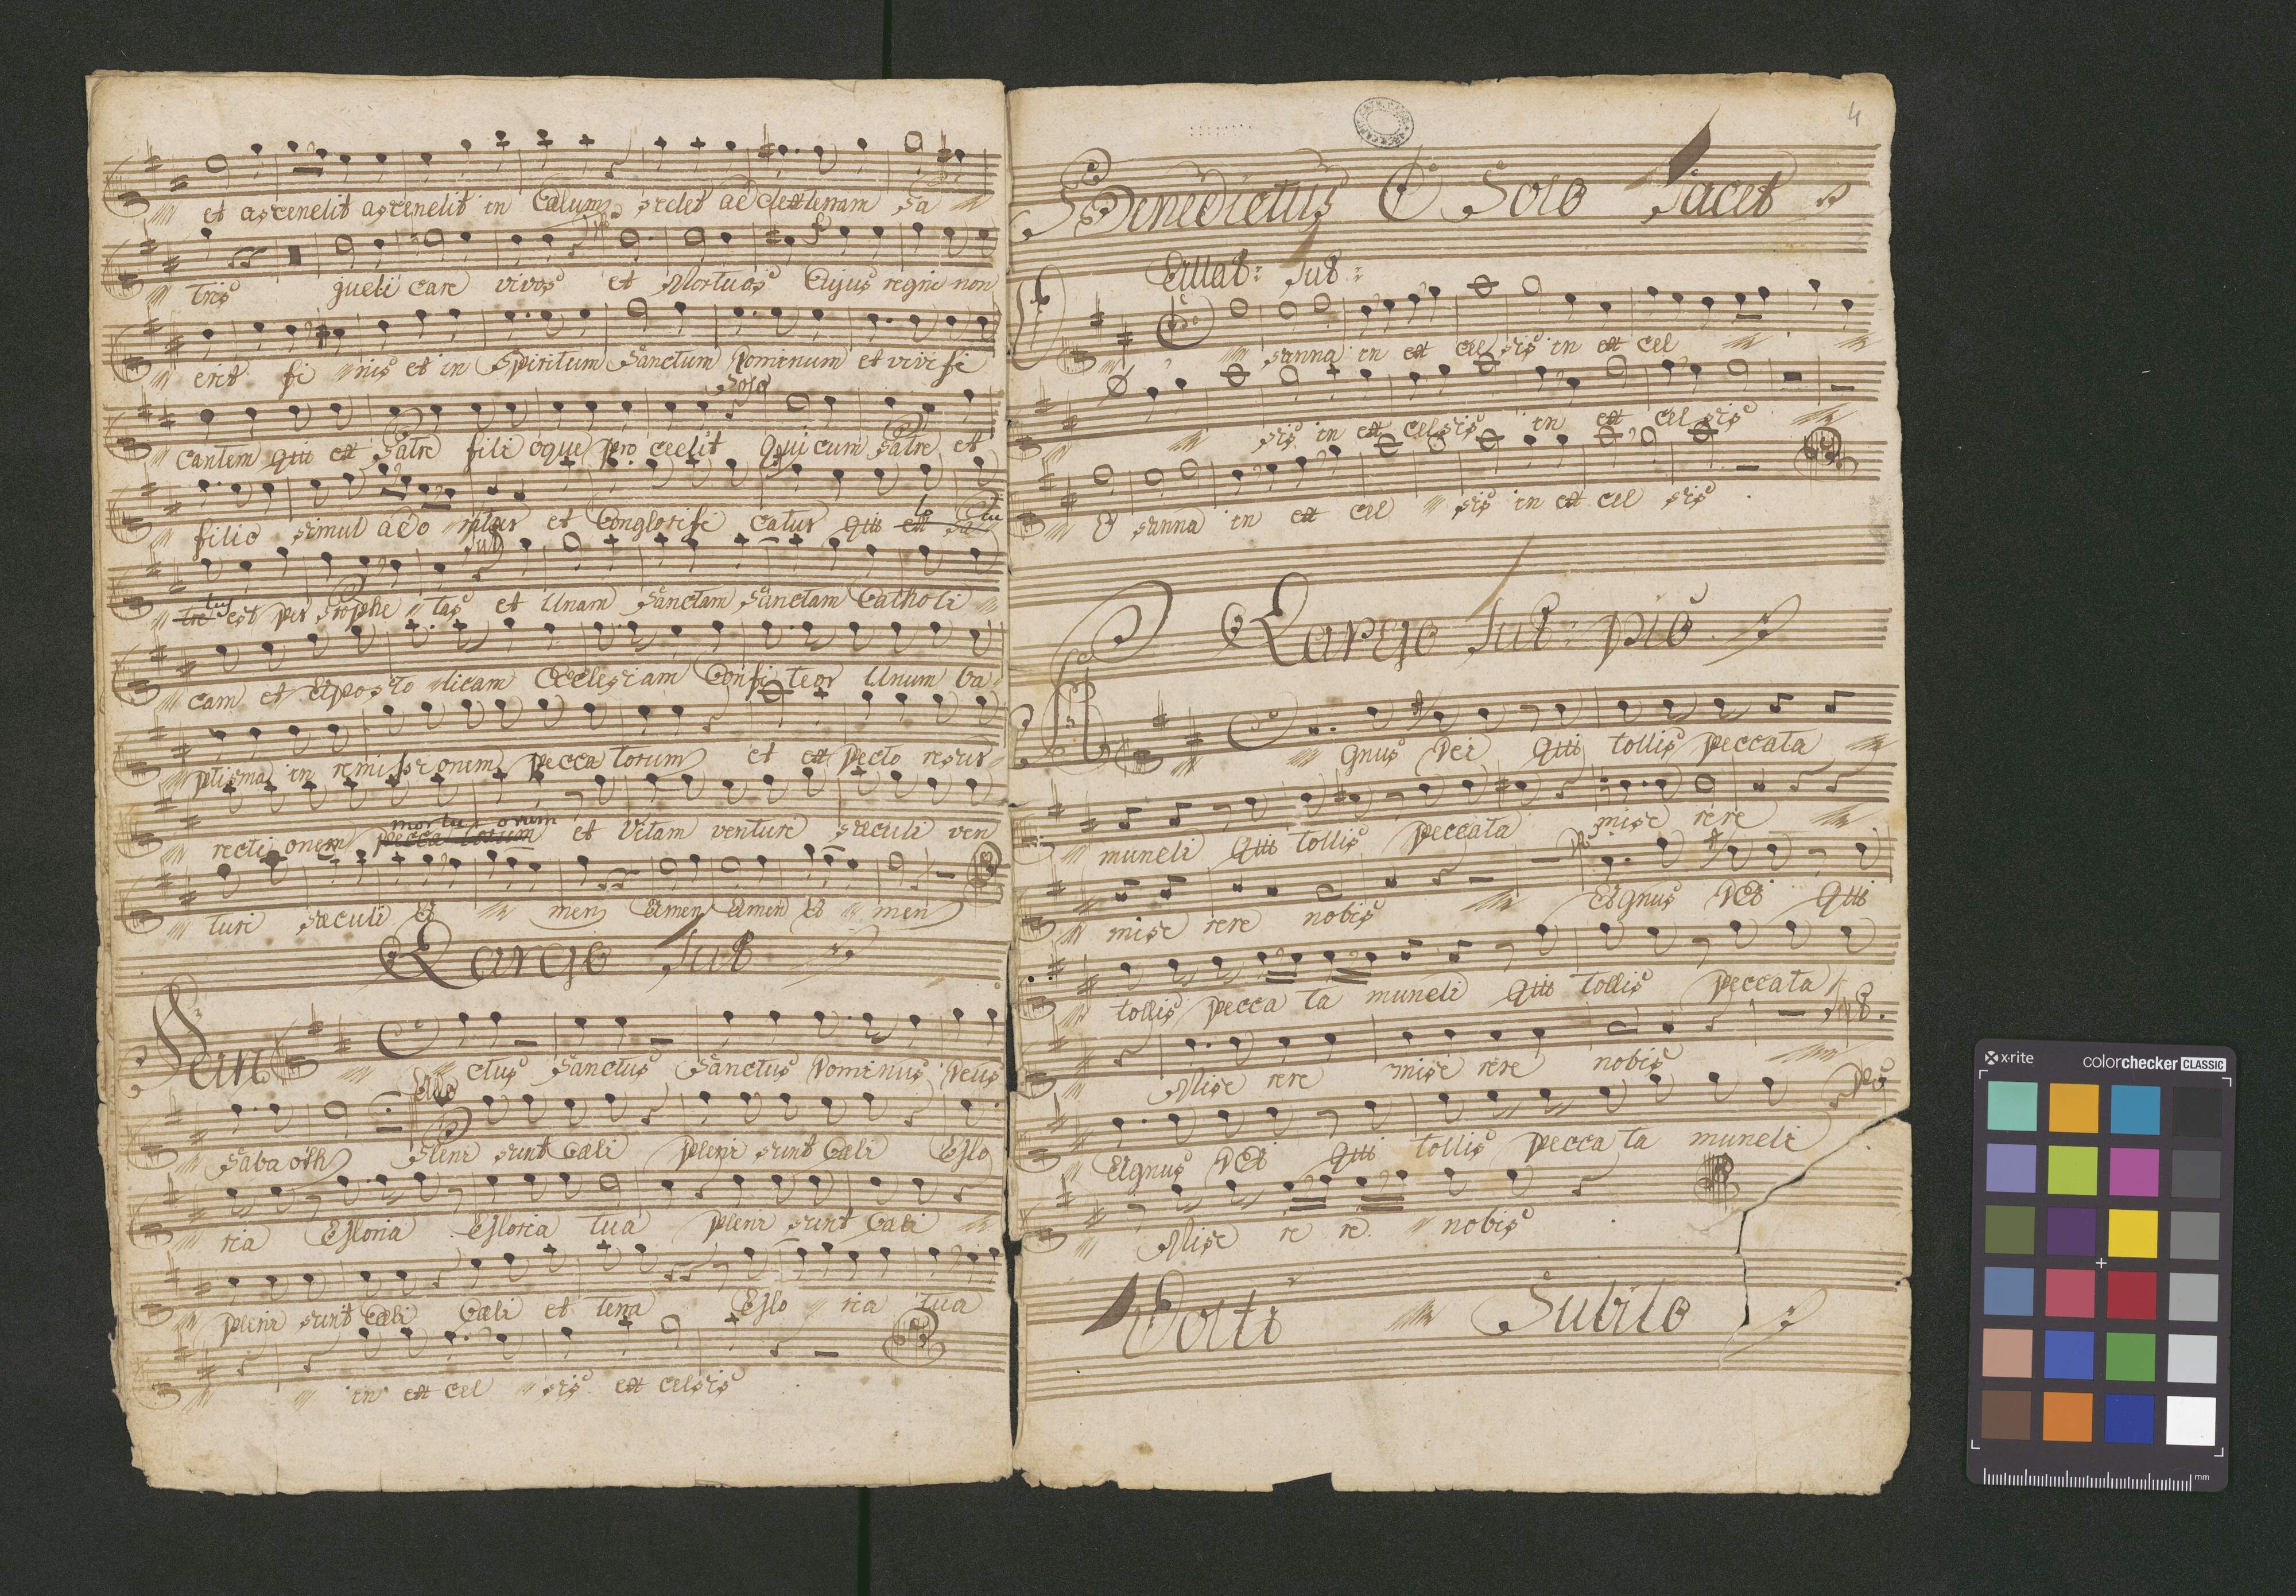 et ascendit ascendit in Cælum sedet ad dexteram Pa
tris judi care vivos et Mortuos Cujus regni non
erit fi nis et in Spiritum Sanctum Dominum et vivi fi
Solo
cantem qui ex Patre fili oque pro cedit qui cum Patre et
filio simul ado ratur et Conglorifi catur qui ex Pa
lo cu
Tutti
tre est per Prophe tas et Unam Sanctam Sanctam Catholi
tus
cam et Aposto licam Ecclesiam Confi teor Unum ba
ptisma in remissionem pecca torum et ex pecto resur
mortu orum
recti onem pecca torum et Vitam venturi sæculi ven
turi sæculi A men Amen Amen A men
Largo Tutt
San ctus Sanctus Sanctus Dominus Deus
Allo
Saba oth Pleni sunt Cæli pleni sunt Cæli Glo
ria Gloria Gloria tua pleni sunt Cæli
pleni sunt Cæli Cæli et terra Glo ria tua
in ex cel sis ex celsis
4
Benedictus C Solo Tacet
Allab: Tutt:
O sanna in ex cel sis in ex cel
sis in ex celsis in ex cel sis
O sanna in ex cel sis in ex cel sis
Largo Tutt: pio
A gnus Dei qui tollis peccata
mundi qui tollis peccata mise rere
mise rere nobis Agnus Dei qui
tollis pecca ta mundi qui tollis peccata
Mise rere mise rere nobis
Agnus Dei qui tollis pecca ta mundi
Mise re re nobis
Volti Subito
x-rite colorchecker CLASSIC
mm